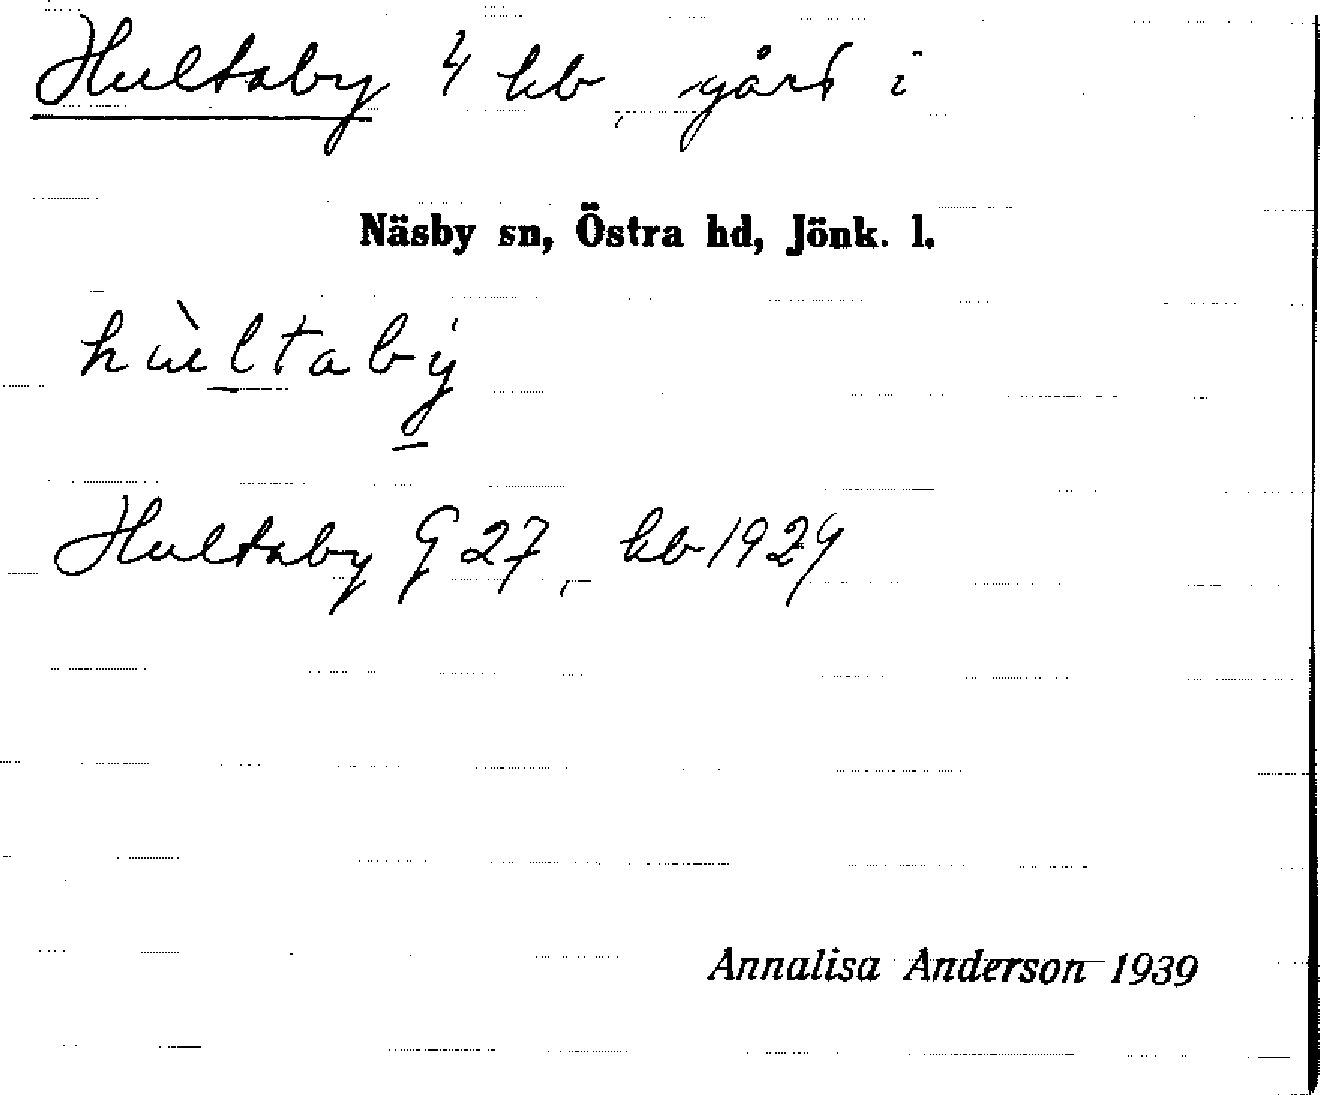 Hultaby 4 hb, gård i
Näsby sn, Östra hd, Jönk. l.
hùltabý
Hultaby G 27, hb 1929
Annalisa Anderson 1939